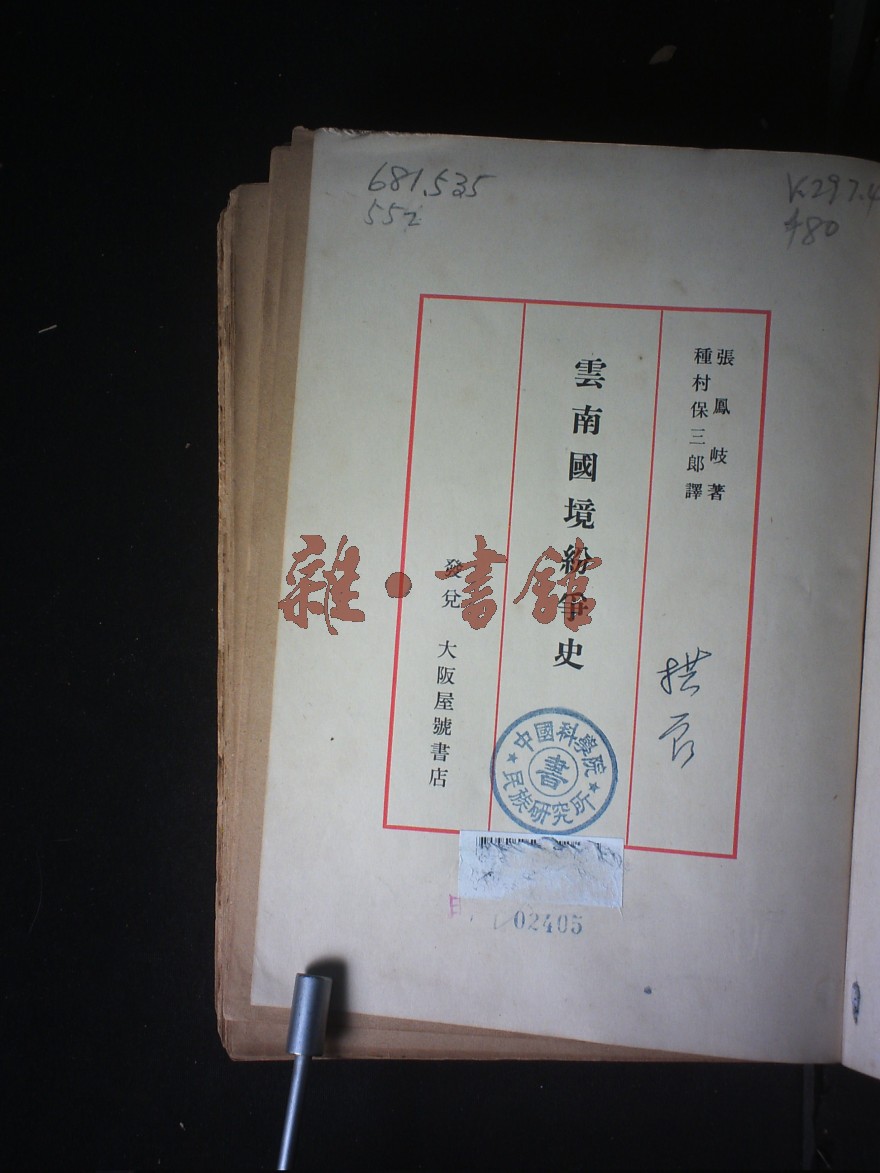 681.535
552
張鳳岐著
種村保三郎譯
雲南國境紛爭史
發兌 大阪屋號書店
雜·書館
中國科學院
民族研究所
書
02405